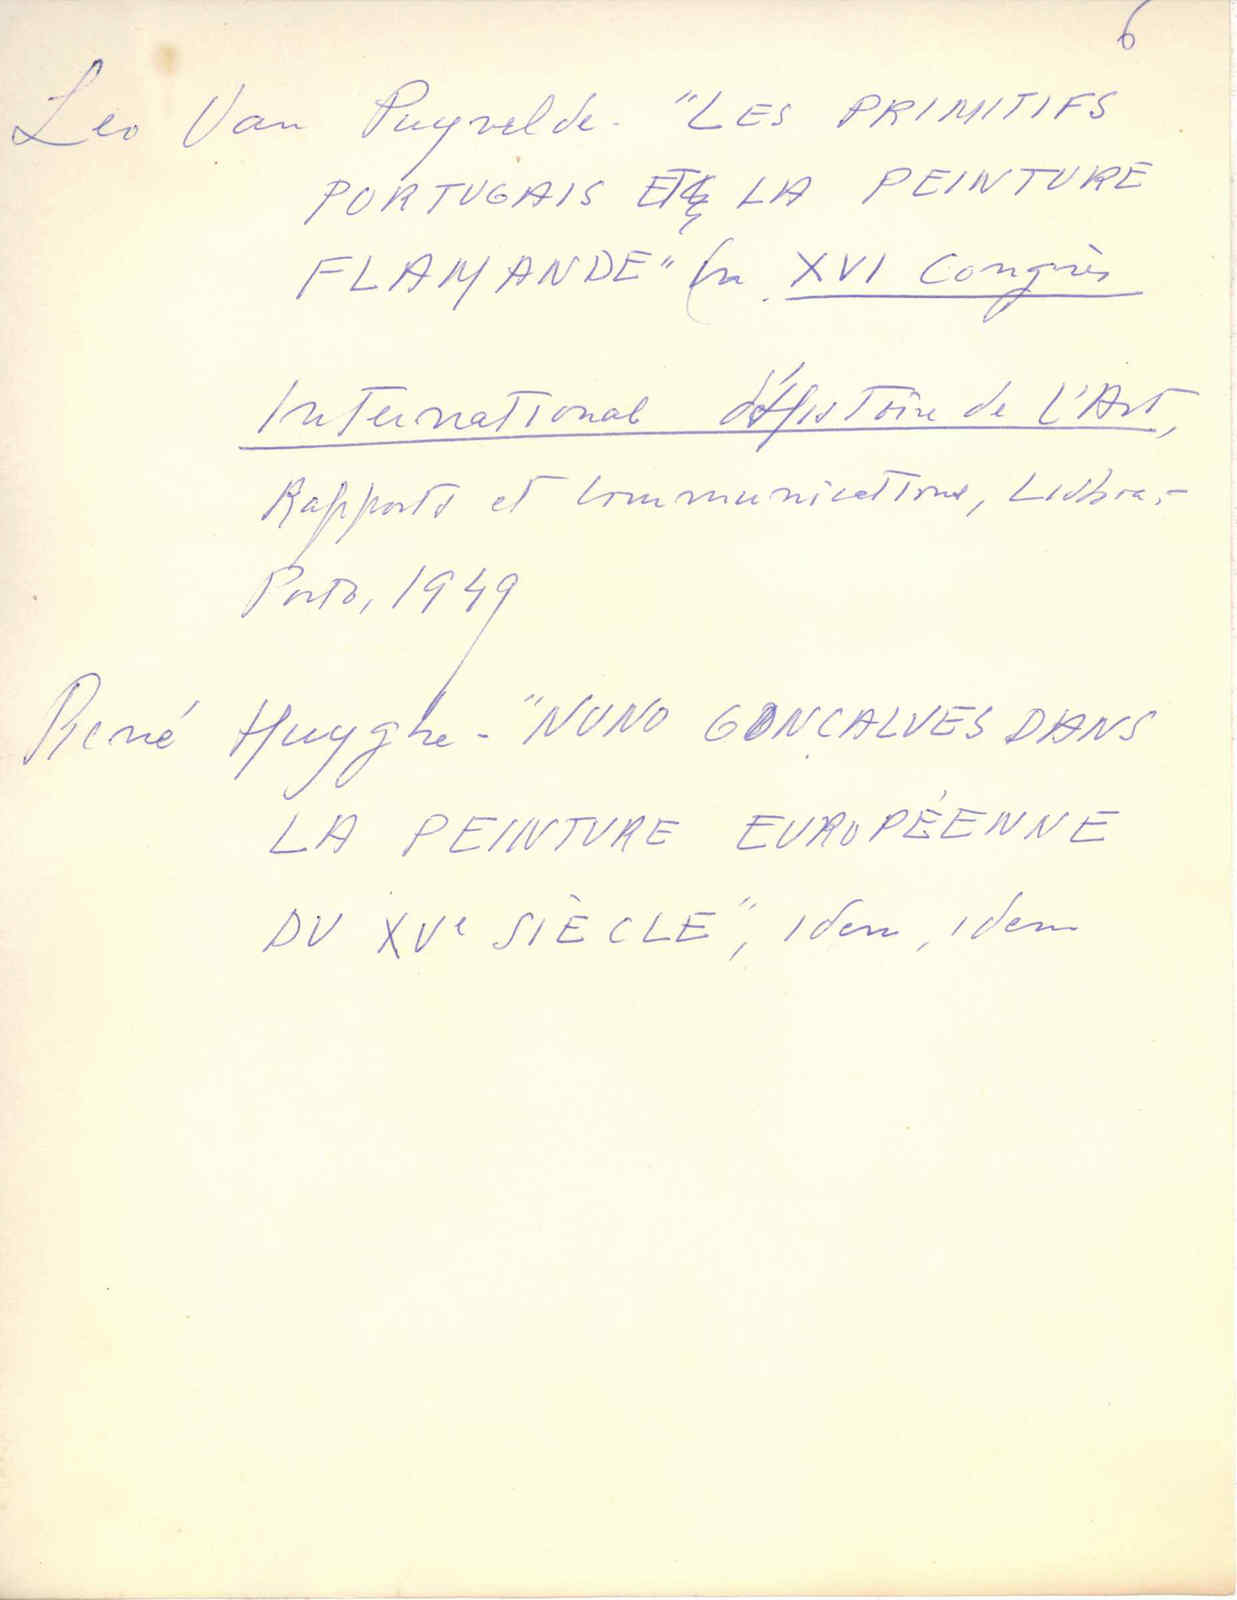 6
Leo Van Puyvelde - "LES PRIMITIFS
PORTUGAIS ET LA PEINTURE
FLAMANDE" in XVI Congrès
International d'Histoire de L'Art,
Rapports et Communications, Lisboa-
Porto, 1949
René Huyghe - "NUNO GONÇALVES DANS
LA PEINTURE EUROPÉENNE
DU XVe SIÈCLE", idem, idem